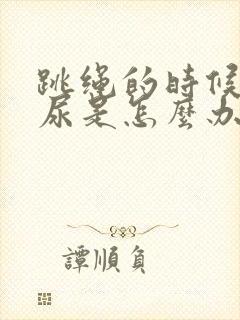 跳繩的時候
尿是怎麼办
譚順負